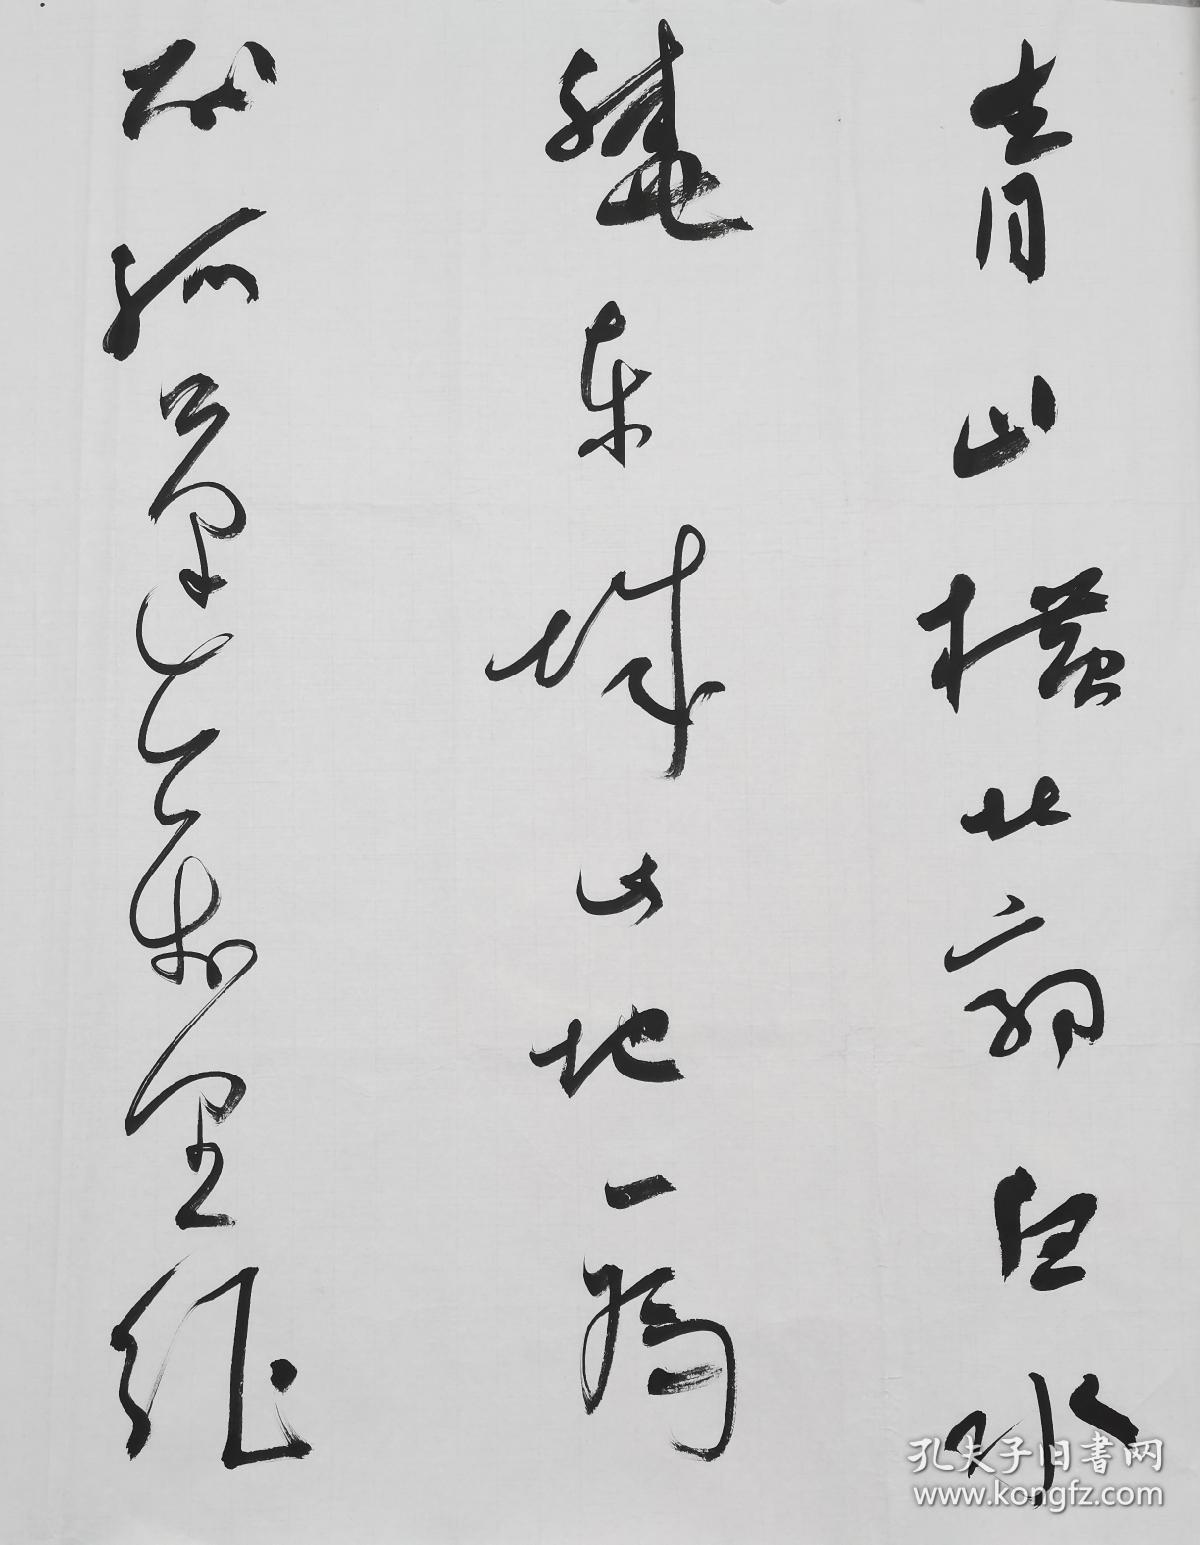 青山橫北郭白水
繞東城此地一為
別孤蓬萬里征
孔夫子旧书网
www.kongfz.com